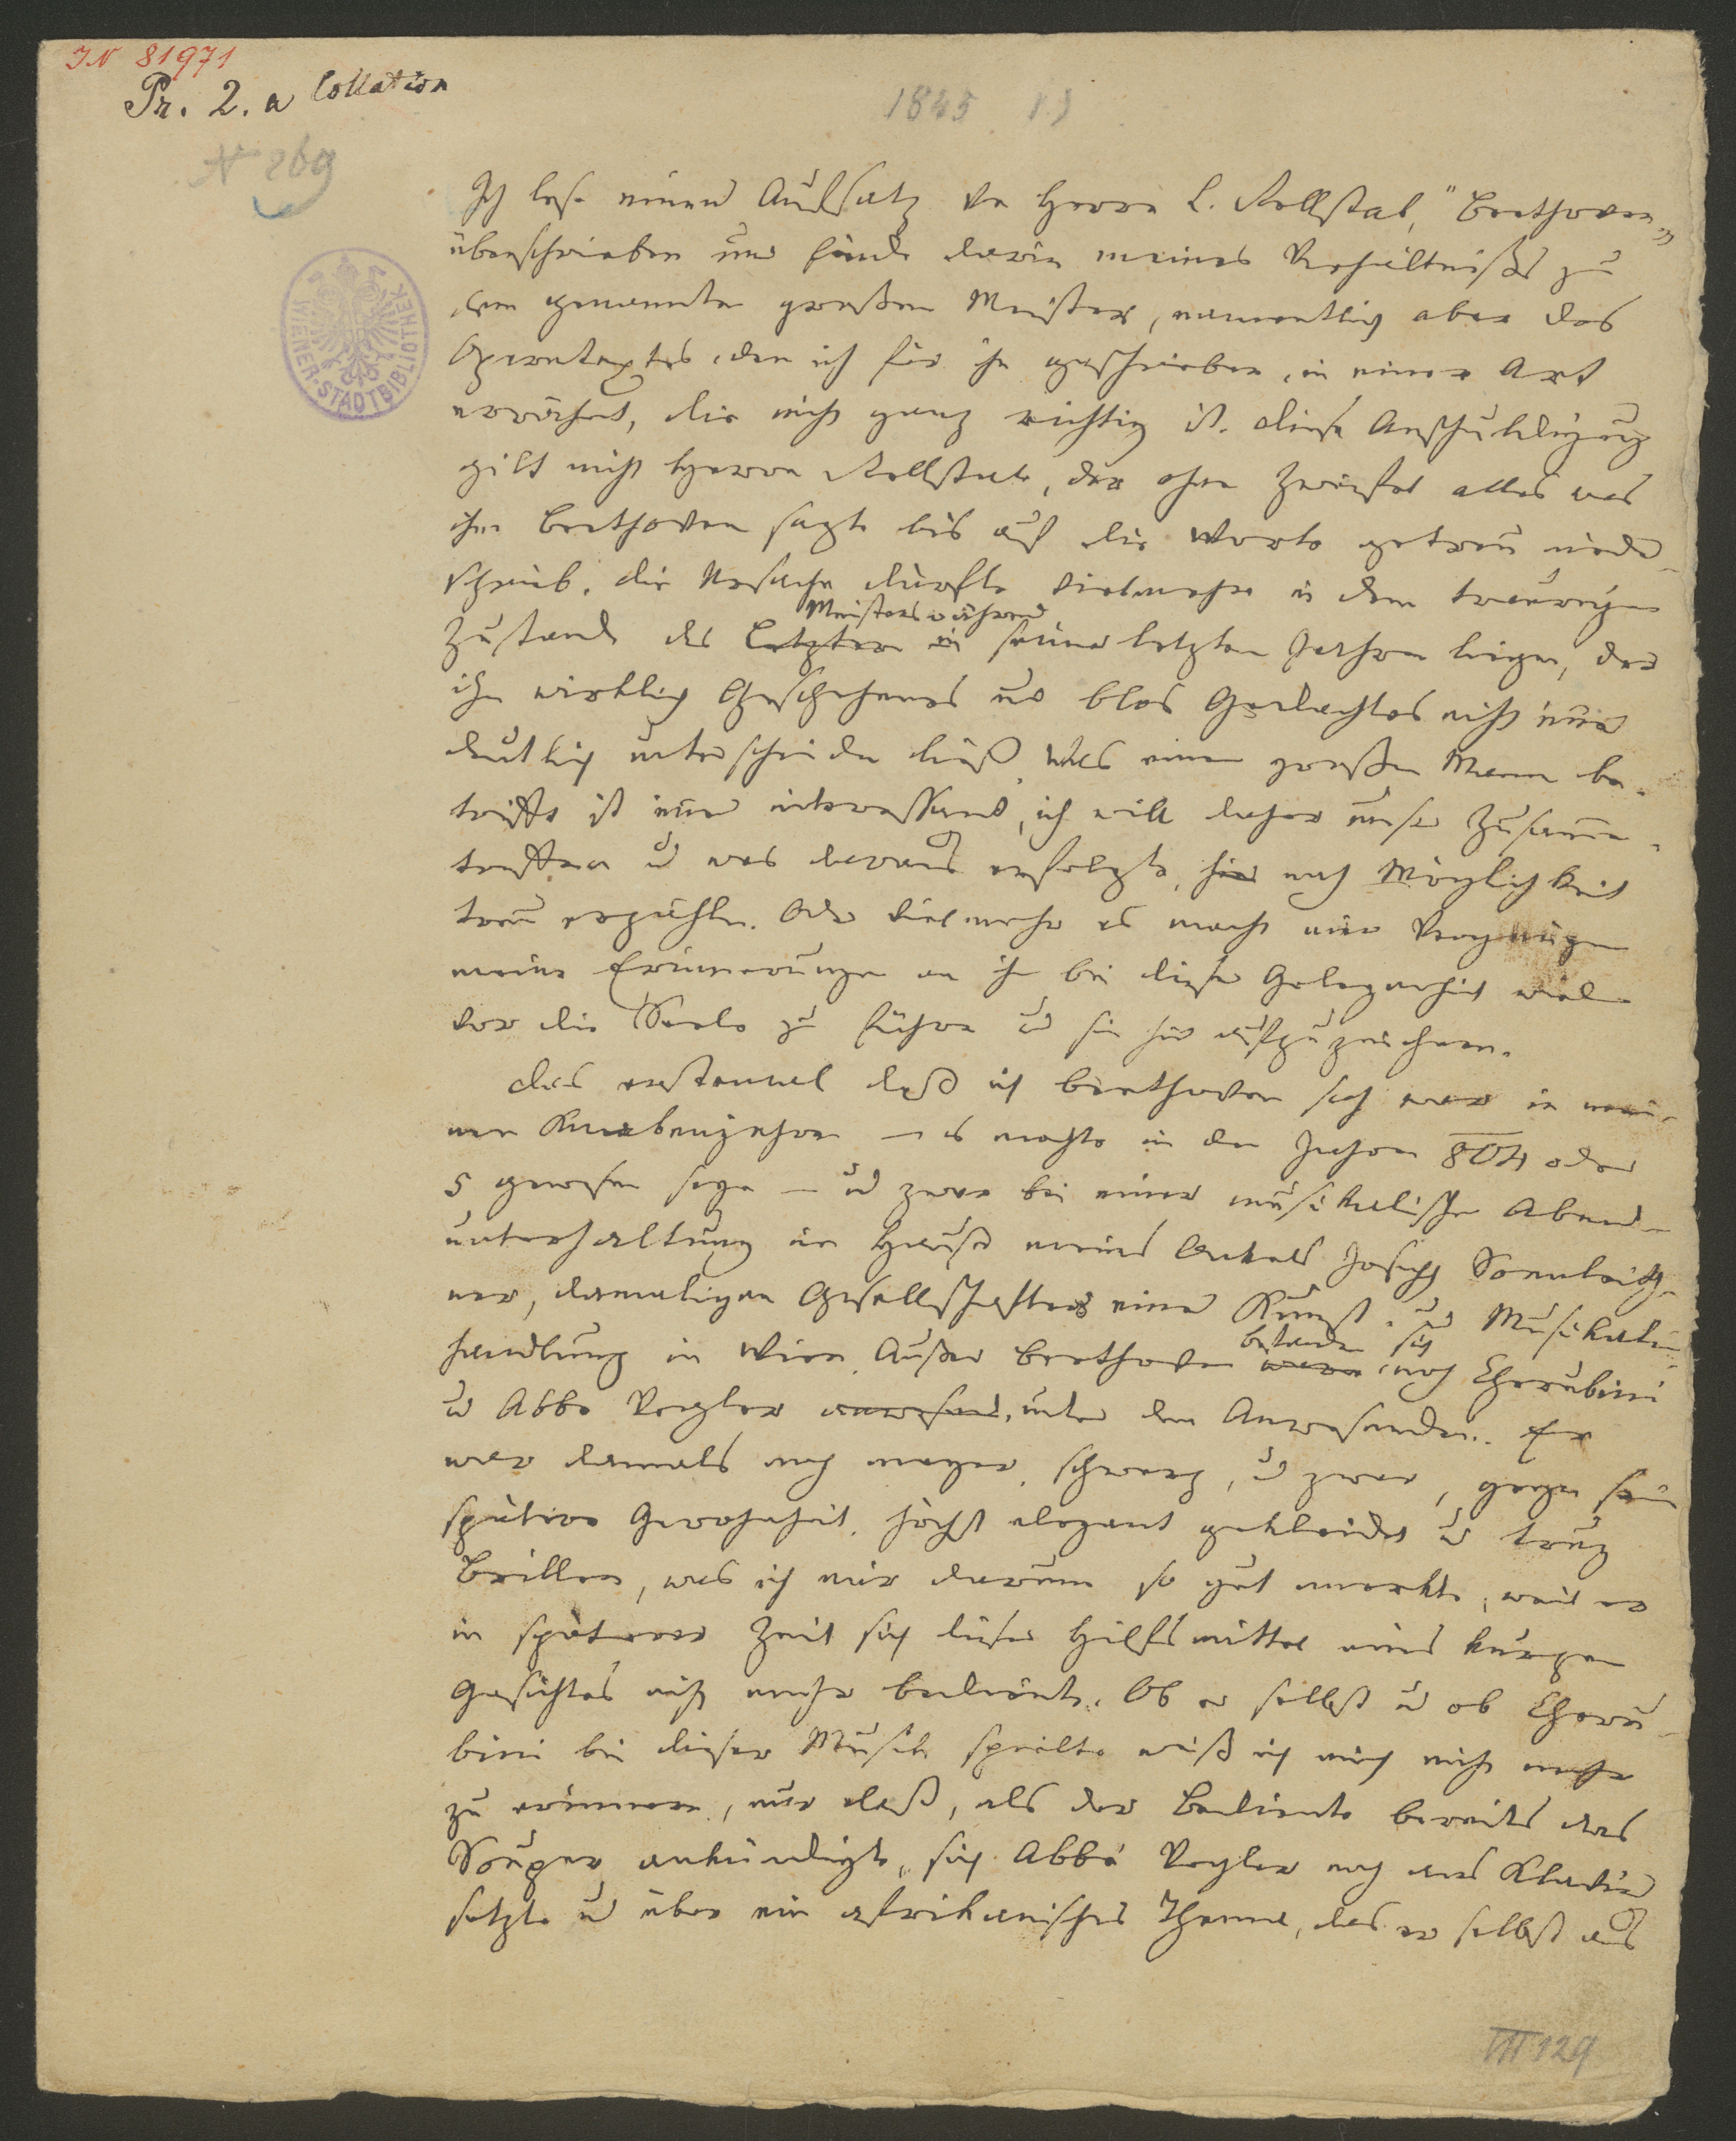 IN 81971
Pr. 2. a Collation
1845
N 269
WIENER-STADTBIBLIOTHEK
Ich lese einen Aufsatz von Herrn L. Rellstab, "Beethoven"
überschrieben und finde darin meines Verhältnißes zu
dem genannten großen Meister, namentlich aber des
Operntextes, den ich für ihn geschrieben, in einer Art
erwähnt, die nicht ganz richtig ist. Diese Anschuldigung
gilt nicht Herrn Rellstab, der ohne Zweifel alles was
ihm Beethoven sagte bis auf die Worte getreu nieder-
schrieb. Die Ursache dürfte vielmehr in dem traurigen
Meisters während
Zustand des Letztern in seiner letzten Jahren liegen, der
ihn wirklich Geschehenes und blos Gedachtes nicht immer
deutlich unterscheiden ließ. Was einen großen Mann be-
trifft ist immer interessant, ich will daher unser Zusammen-
treffen u was daraus erfolgte, hier nach Möglichkeit
treu erzählen. Oder vielmehr es macht mir Vergnügen
meine Erinnerungen an ihn bei dieser Gelegenheit wieder
vor die Seele zu führen u sie hier aufzuzeichnen.
Das erstemal daß ich Beethoven sah war in mei-
nen Knabenjahren – es mochte in den Jahren 804 oder
5 gewesen seyn – u zwar bei einer musikalischen Abend-
unterhaltung im Hause meines Onkels Joseph Sonnleith-
ner, damaligen Gesellschafters einer Kunst- u Musikalien-
handlung in Wien. Außer Beethoven waren noch Cherubini
befanden sich
u Abbe Vogler anwesend, unter den Anwesenden. Er
war damals noch mager, schwarz, u zwar, gegen seine
spätere Gewohnheit, höchst elegant gekleidet u trug
Brillen, was ich mir darum so gut merkte, weil er
in späterer Zeit sich dieser Hilfsmittel eines kurzen
Gesichtes nicht mehr bediente. Ob er selbst u ob Cheru-
bini bei dieser Musik spielte weiß ich mich nicht mehr
zu erinnern, nur daß, als der Bediente bereits das
Souper ankündigte, sich Abbé Vogler noch ans Klavier
setzte u über ein afrikanisches Thema, das er selbst aus
III 129